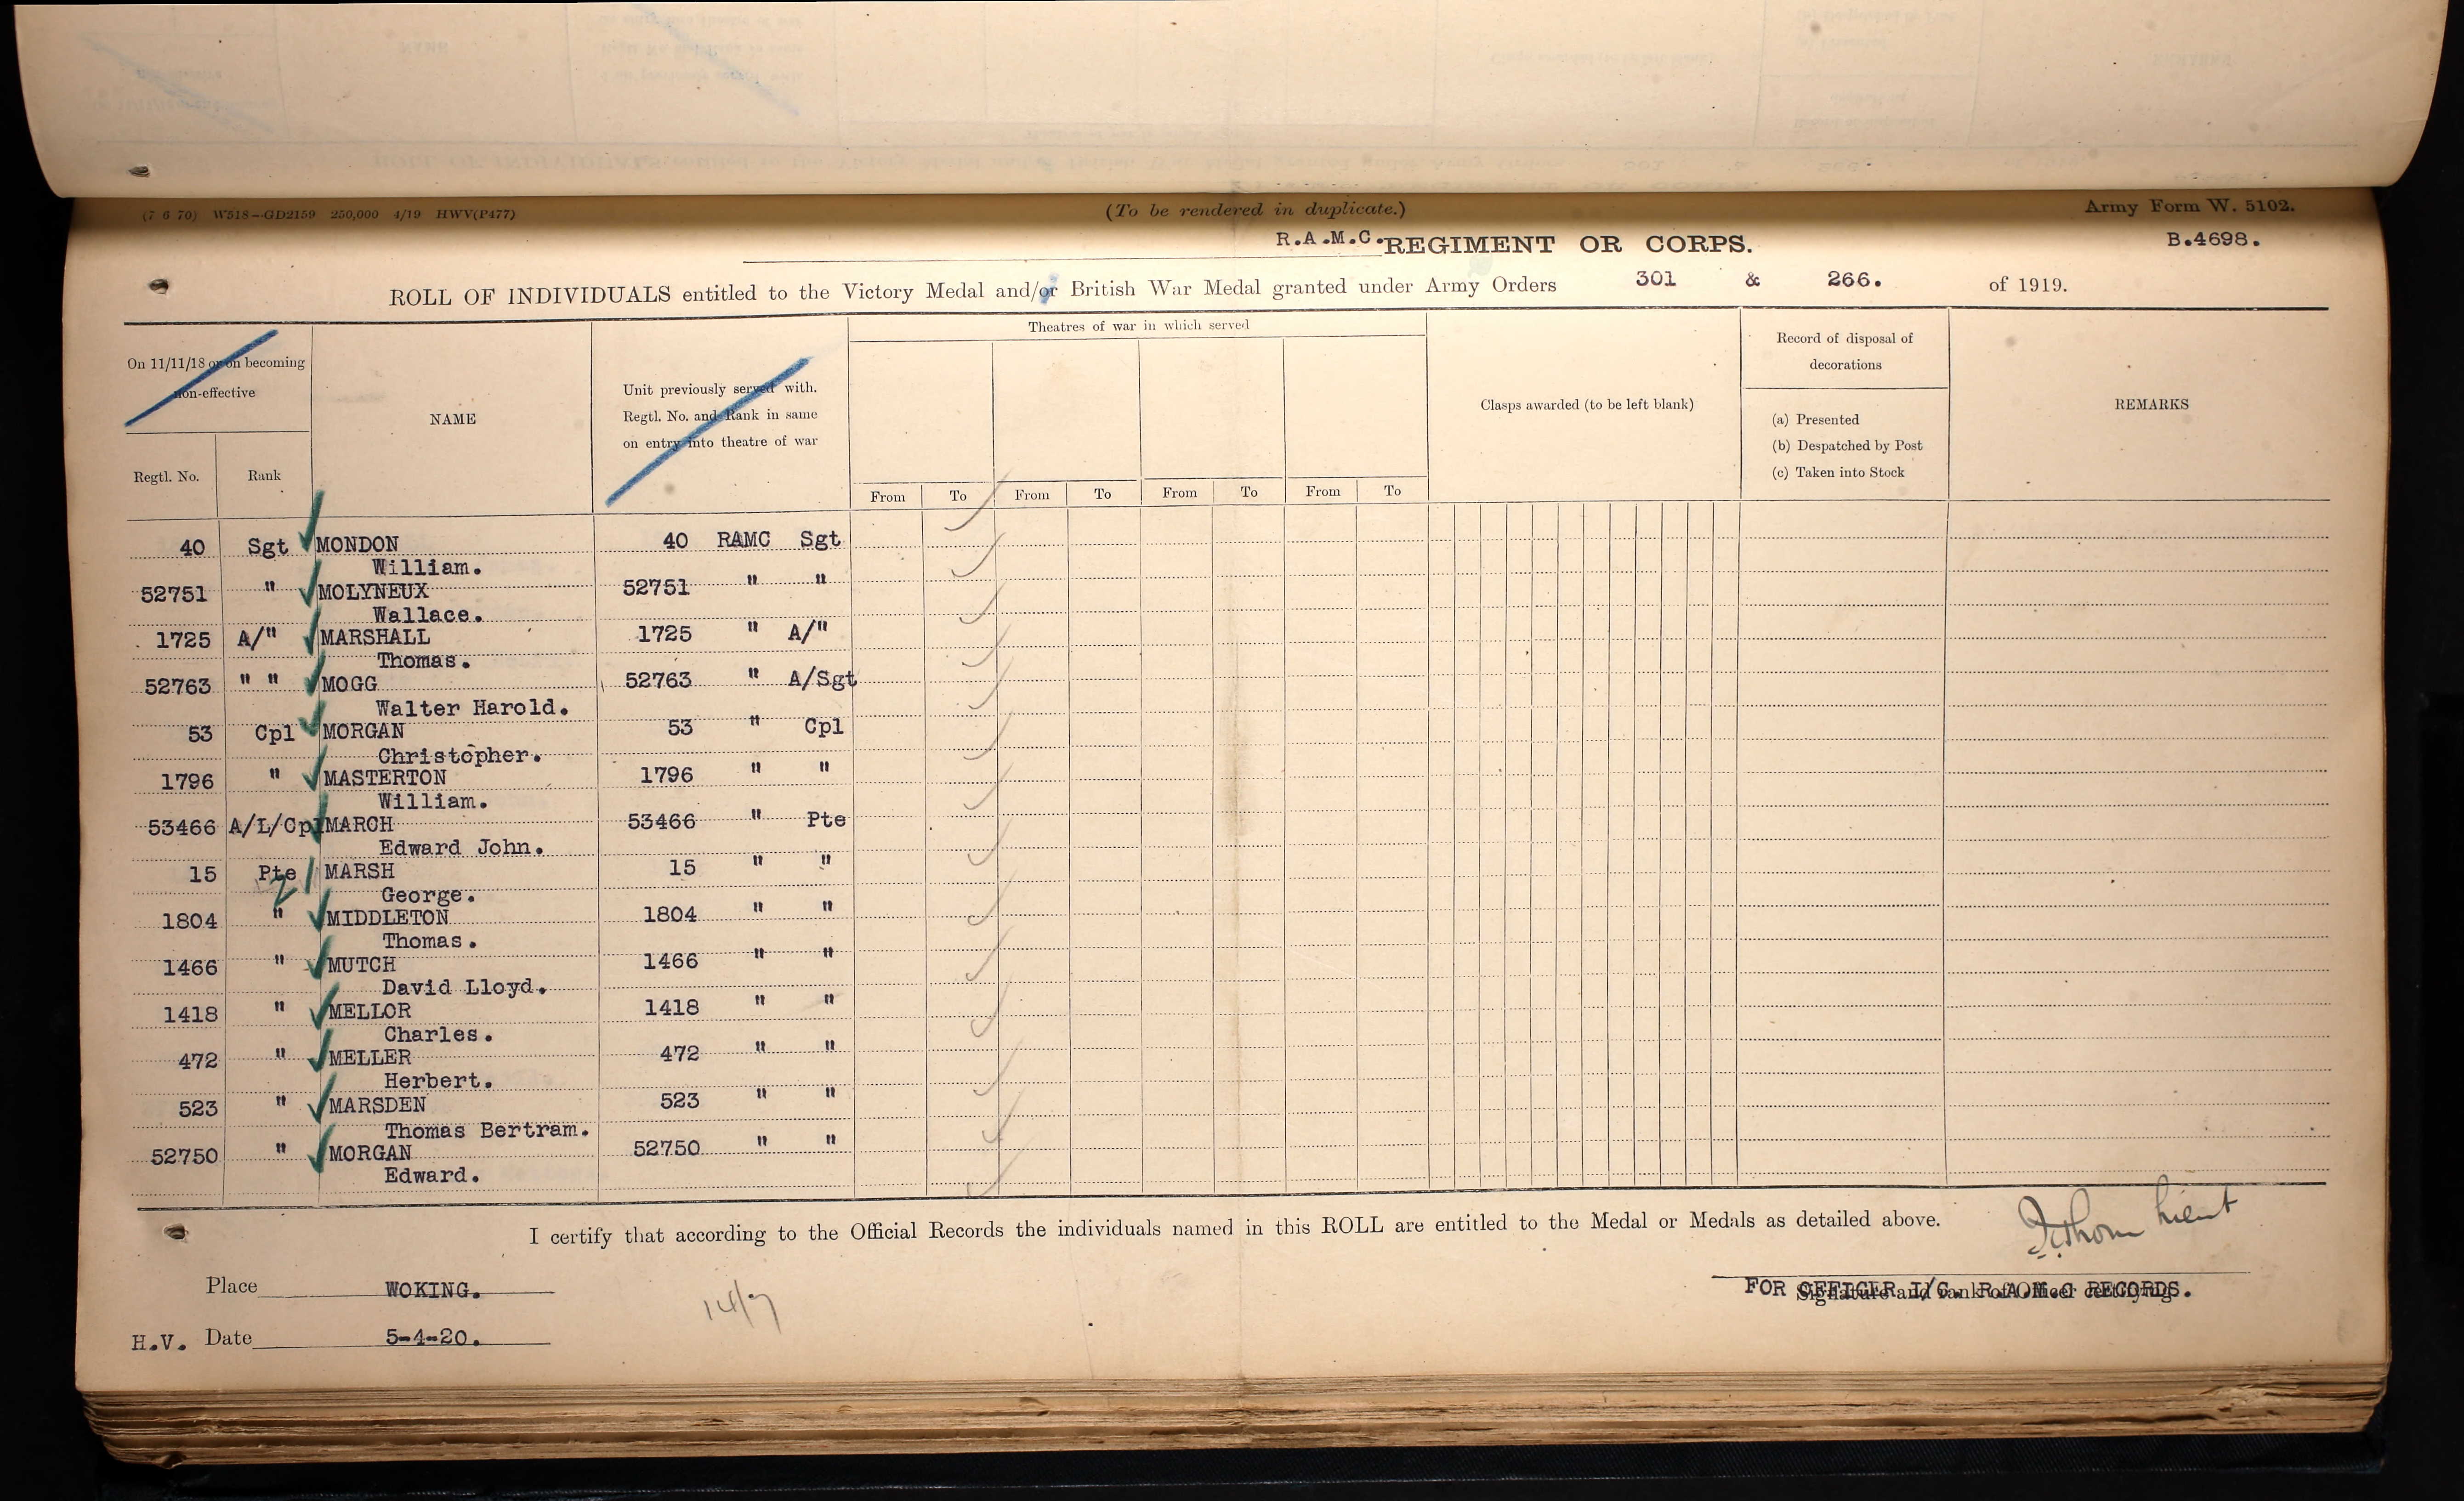 (7 6 70) W518—GD2159 250,000 4/19 HWV(P477)
(To be rendered in duplicate.)
Army Form W. 5102.
R.A.M.C. REGIMENT OR CORPS.
B.4698.
ROLL OF INDIVIDUALS entitled to the Victory Medal and/or British War Medal granted under Army Orders 301 & 266. of 1919.
On 11/11/18 or on becoming
non-effective
Regtl. No.
Rank
NAME
Unit previously served with.
Regtl. No. and Rank in same
on entry into theatre of war
Theatres of war in which served
From To From To From To From To
Clasps awarded (to be left blank)
Record of disposal of
decorations
(a) Presented
(b) Despatched by Post
(c) Taken into Stock
REMARKS
40 Sgt MONDON 40 RAMC Sgt
William.
52751 " MOLYNEUX 52751 " "
Wallace.
1725 A/" MARSHALL 1725 " A/"
Thomas.
52763 " " MOGG 52763 " A/Sgt
Walter Harold.
53 Cpl MORGAN 53 " Cpl
Christopher.
1796 " MASTERTON 1796 " "
William.
53466 A/L/Cpl MARCH 53466 " Pte
Edward John.
15 Pte MARSH 15 " "
George.
1804 " MIDDLETON 1804 " "
Thomas.
1466 " MUTCH 1466 " "
David Lloyd.
1418 " MELLOR 1418 " "
Charles.
472 " MELLER 472 " "
Herbert.
523 " MARSDEN 523 " "
Thomas Bertram.
52750 " MORGAN 52750 " "
Edward.
I certify that according to the Official Records the individuals named in this ROLL are entitled to the Medal or Medals as detailed above.
Lieut
Place WOKING.
FOR OFFICER I/C. R.A.M.C RECORDS.
Signature and rank of Officer certifying
H.V. Date 5-4-20.